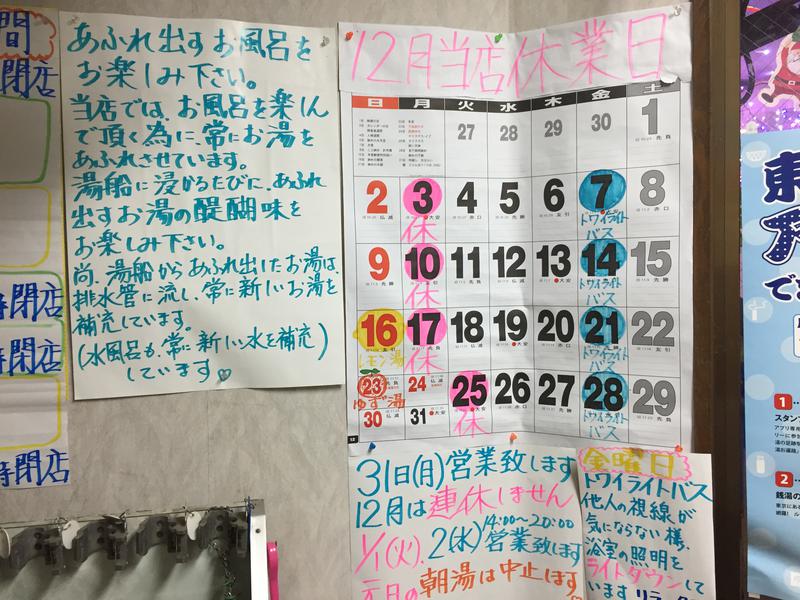 間
閉店
時閉店
時閉店
時閉店
あふれ出すお風呂を
お楽しみ下さい。
当店では、お風呂を楽しん
で頂く為に、常にお湯を
あふれさせています。
湯船に浸かるたびに、あふれ
出すお湯の醍醐味を
お楽しみ下さい。
尚、湯船からあふれ出したお湯は、
排水管に流し、常に新しいお湯を
補充しています。
(水風呂も、常に新しい水を補充)
しています♡
12月当店休業日
日 月 火 水 木 金 土
27 28 29 30 1
先負
2 3 4 5 6 7 8
仏滅 大安 赤口 先勝 友引 赤口
休 トワイライト
バス
9 10 11 12 13 14 15
先勝 大安
休 トワイライト
バス
16 17 18 19 20 21 22
仏滅 大安
レモン湯 休 トワイライト
バス
23 24 25 26 27 28 29
先負 大安
ゆず湯 休 トワイライト
バス
30 31
12
31日(月)営業致します
12月は連休しません
14:00~20:00
1/1(火)、2(水)営業致します
元日の朝湯は中止します
金曜日
トワイライトバス
他人の視線が
気にならない様、
浴室の照明を
ライトダウンして
います
東
で
1
スタン
アプリ専
リーに参
湯の足跡
湯お遍路
2
銭湯の
東京にある